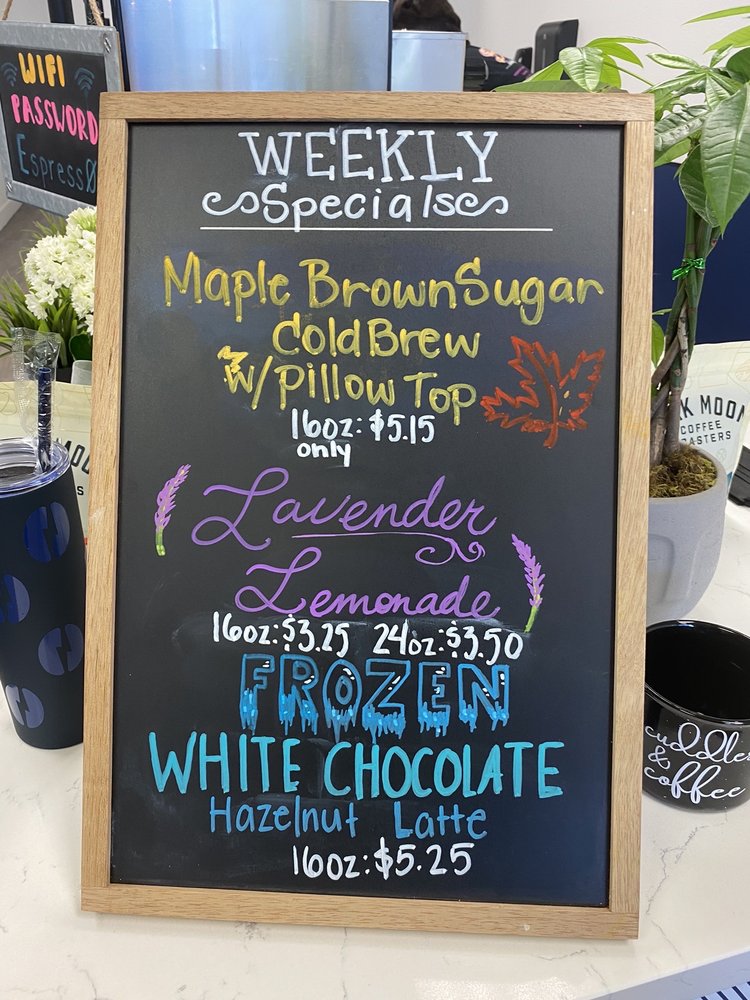 WIFI
PASSWORD
EspressØ
WEEKLY
Specials
Maple Brown Sugar
Cold Brew
w/Pillow Top
16oz: $5.15
only
Lavender
Lemonade
16oz: $3.25 24oz: $3.50
FROZEN
WHITE CHOCOLATE
Hazelnut Latte
16oz: $5.25
MOON
COFFEE
cuddles
&
coffee